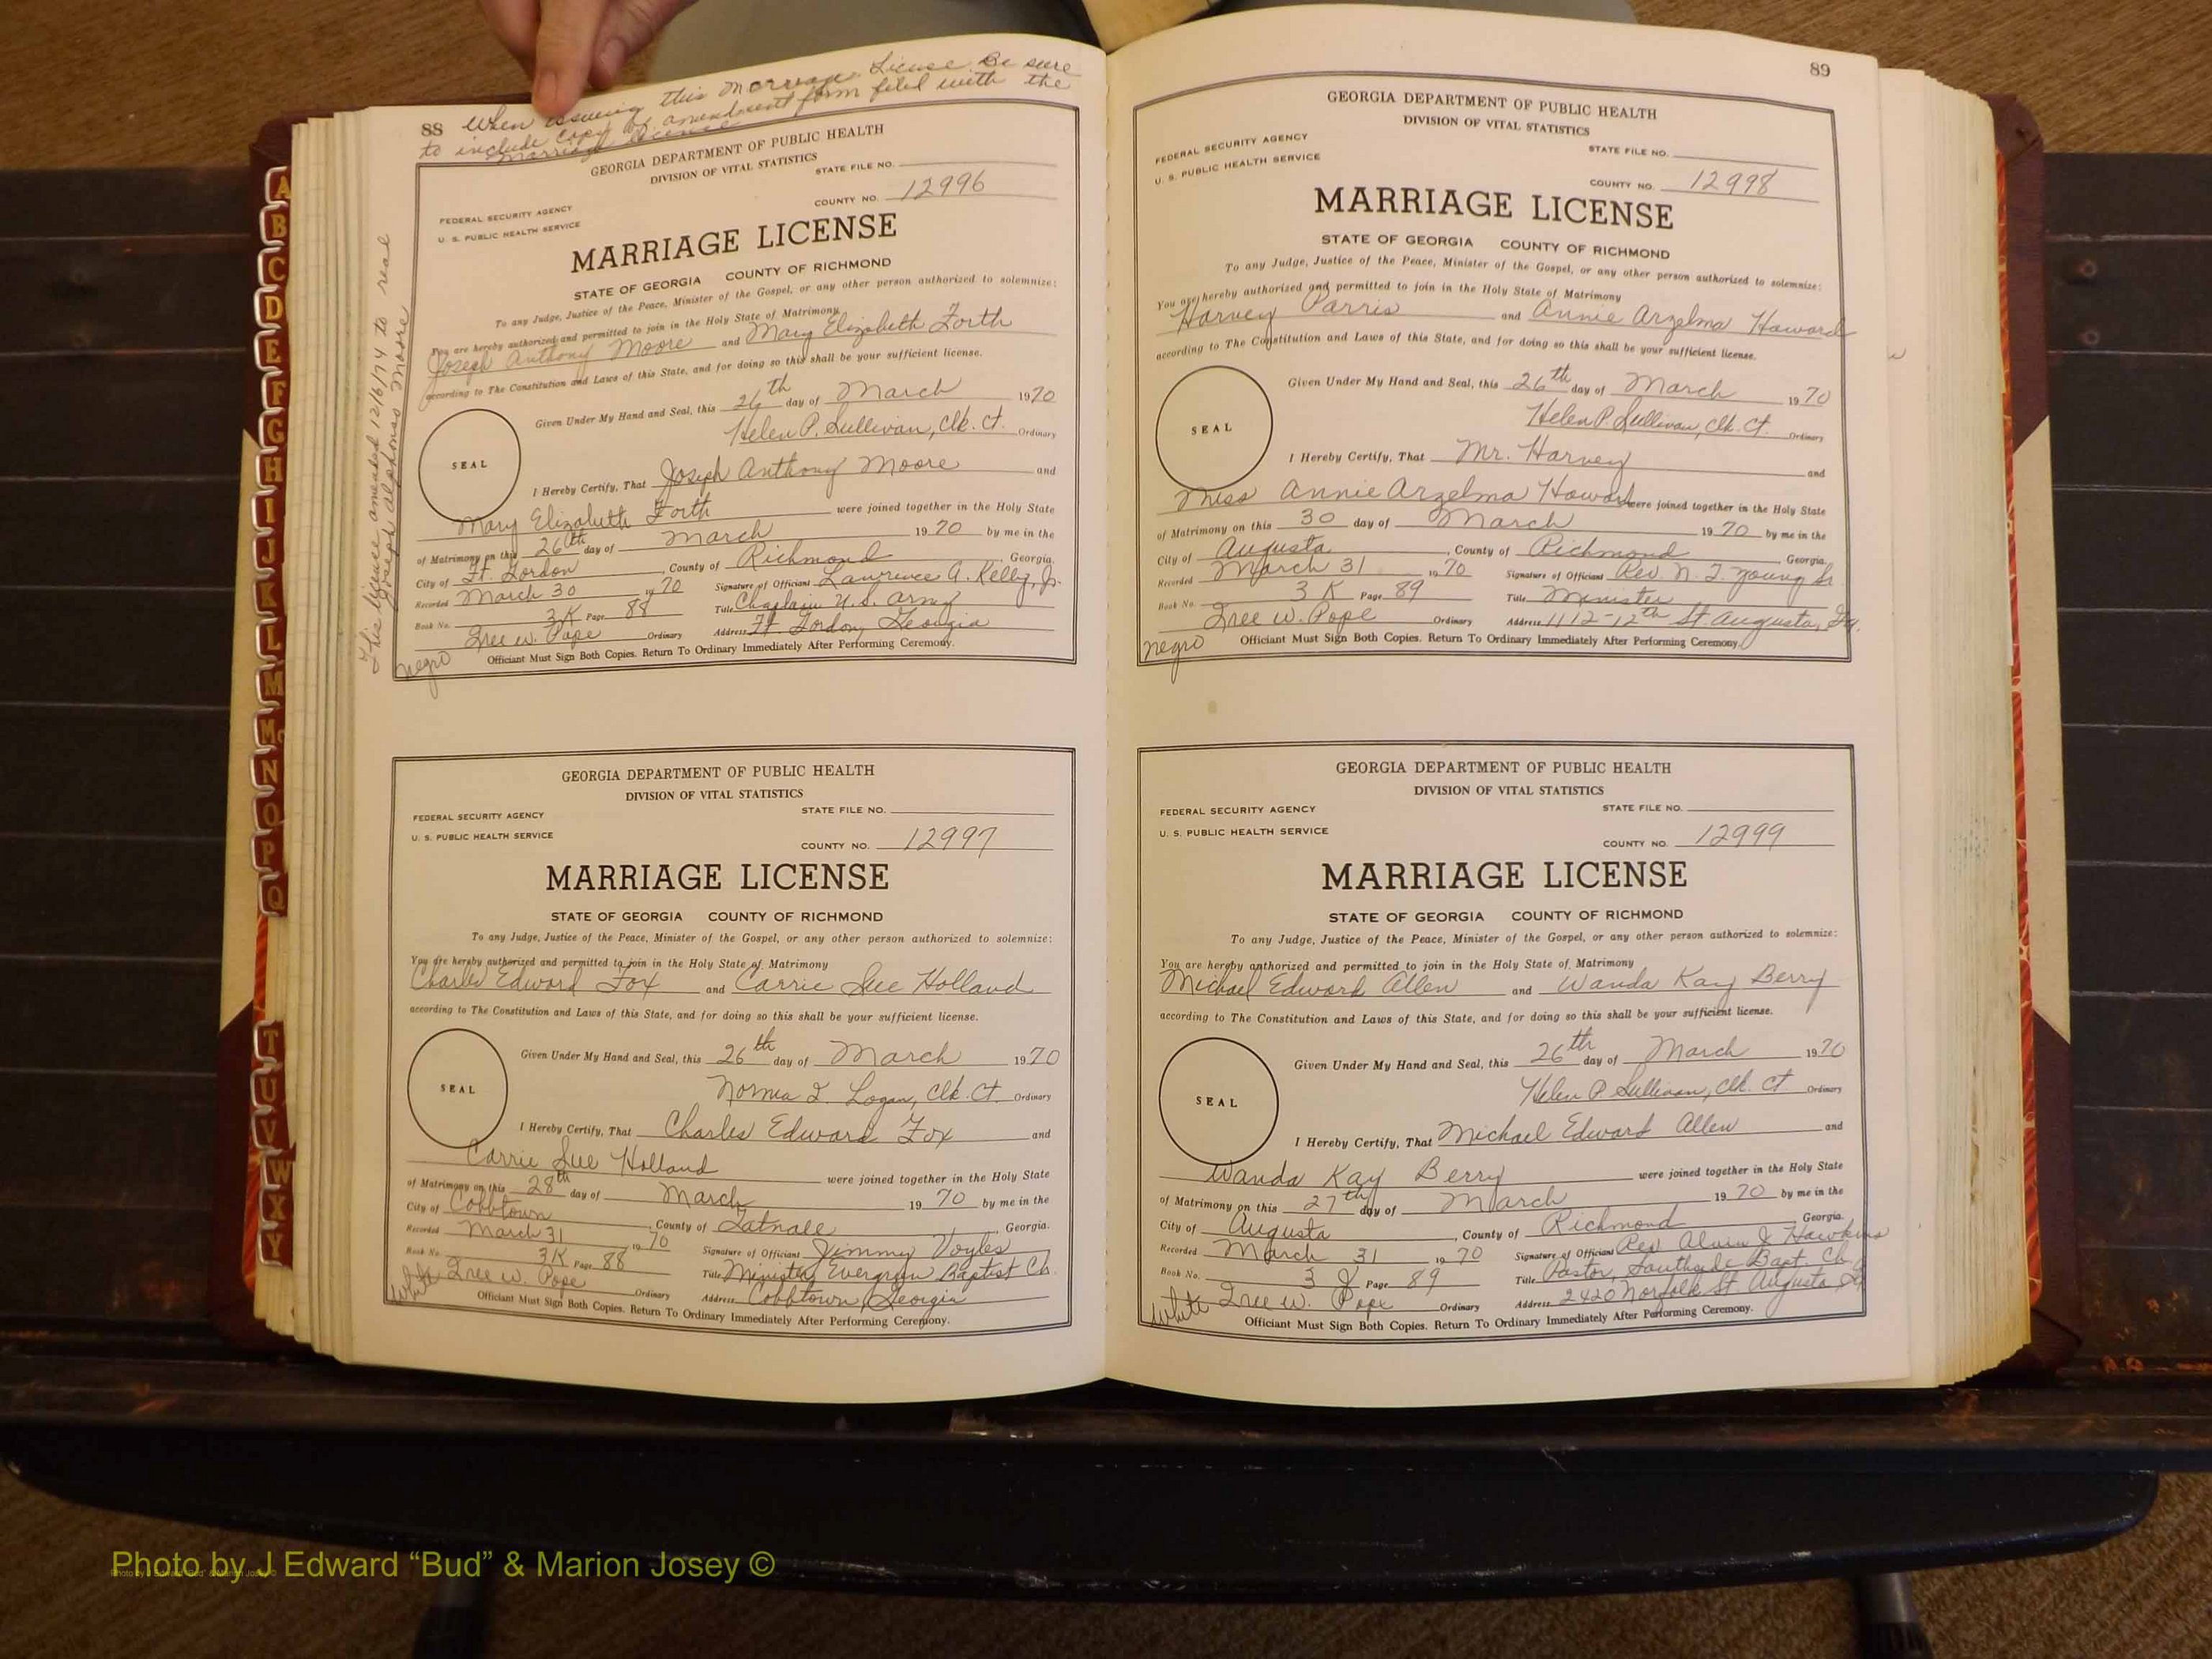 88 When issuing this Marriage License Be sure
to include copy of amendment form filed with the
Marriage License
This license amended 12/6/74 to read
Joseph Alphonso Moore
GEORGIA DEPARTMENT OF PUBLIC HEALTH
DIVISION OF VITAL STATISTICS
STATE FILE NO.
FEDERAL SECURITY AGENCY
U. S. PUBLIC HEALTH SERVICE
COUNTY NO. 12996
MARRIAGE LICENSE
STATE OF GEORGIA COUNTY OF RICHMOND
To any Judge, Justice of the Peace, Minister of the Gospel, or any other person authorized to solemnize:
You are hereby authorized and permitted to join in the Holy State of Matrimony
Joseph Anthony Moore and Mary Elizabeth Forth
according to The Constitution and Laws of this State, and for doing so this shall be your sufficient license.
SEAL
Given Under My Hand and Seal, this 26th day of March 1970
Helen P. Sullivan, Clk. Ct. Ordinary
I Hereby Certify, That Joseph Anthony Moore and
Mary Elizabeth Forth were joined together in the Holy State
of Matrimony on this 26th day of March 1970 by me in the
City of Ft. Gordon, County of Richmond, Georgia.
Recorded March 30 1970 Signature of Officiant Lawrence A. Kelly, Jr.
Book No. 3K Page 88 Title Chaplain U.S. Army
Iree W. Pope Ordinary Address Ft. Gordon, Georgia
negro Officiant Must Sign Both Copies. Return To Ordinary Immediately After Performing Ceremony.
GEORGIA DEPARTMENT OF PUBLIC HEALTH
DIVISION OF VITAL STATISTICS
FEDERAL SECURITY AGENCY STATE FILE NO.
U. S. PUBLIC HEALTH SERVICE
COUNTY NO. 12997
MARRIAGE LICENSE
STATE OF GEORGIA COUNTY OF RICHMOND
To any Judge, Justice of the Peace, Minister of the Gospel, or any other person authorized to solemnize:
You are hereby authorized and permitted to join in the Holy State of Matrimony
Charles Edward Fox and Carrie Sue Holland
according to The Constitution and Laws of this State, and for doing so this shall be your sufficient license.
SEAL
Given Under My Hand and Seal, this 26th day of March 1970
Norma L. Logan, Clk. Ct. Ordinary
I Hereby Certify, That Charles Edward Fox and
Carrie Sue Holland were joined together in the Holy State
of Matrimony on this 28th day of March 1970 by me in the
City of Cobbtown, County of Tatnall, Georgia.
Recorded March 31 1970 Signature of Officiant Jimmy Voyles
Book No. 3K Page 88 Title Minister, Evergreen Baptist Ch.
Iree W. Pope Ordinary Address Cobbtown, Georgia
White Officiant Must Sign Both Copies. Return To Ordinary Immediately After Performing Ceremony.
89
GEORGIA DEPARTMENT OF PUBLIC HEALTH
DIVISION OF VITAL STATISTICS
FEDERAL SECURITY AGENCY STATE FILE NO.
U. S. PUBLIC HEALTH SERVICE
COUNTY NO. 12998
MARRIAGE LICENSE
STATE OF GEORGIA COUNTY OF RICHMOND
To any Judge, Justice of the Peace, Minister of the Gospel, or any other person authorized to solemnize:
You are hereby authorized and permitted to join in the Holy State of Matrimony
Harvey Parris and Annie Arzelma Howard
according to The Constitution and Laws of this State, and for doing so this shall be your sufficient license.
SEAL
Given Under My Hand and Seal, this 26th day of March 1970
Helen P. Sullivan, Clk. Ct. Ordinary
I Hereby Certify, That Mr. Harvey and
Miss Annie Arzelma Howard were joined together in the Holy State
of Matrimony on this 30 day of March 1970 by me in the
City of Augusta, County of Richmond Georgia.
Recorded March 31 1970 Signature of Officiant Rev. N. T. Young Sr.
Book No. 3 K Page 89 Title Minister
Iree W. Pope Ordinary Address 1112-12th St Augusta, Ga.
negro Officiant Must Sign Both Copies. Return To Ordinary Immediately After Performing Ceremony.
GEORGIA DEPARTMENT OF PUBLIC HEALTH
DIVISION OF VITAL STATISTICS
FEDERAL SECURITY AGENCY STATE FILE NO.
U. S. PUBLIC HEALTH SERVICE
COUNTY NO. 12999
MARRIAGE LICENSE
STATE OF GEORGIA COUNTY OF RICHMOND
To any Judge, Justice of the Peace, Minister of the Gospel, or any other person authorized to solemnize:
You are hereby authorized and permitted to join in the Holy State of Matrimony
Michael Edward Allen and Wanda Kay Berry
according to The Constitution and Laws of this State, and for doing so this shall be your sufficient license.
SEAL
Given Under My Hand and Seal, this 26th day of March 1970
Helen P. Sullivan, Clk. Ct Ordinary
I Hereby Certify, That Michael Edward Allen and
Wanda Kay Berry were joined together in the Holy State
of Matrimony on this 27th day of March 1970 by me in the
City of Augusta, County of Richmond Georgia.
Recorded March 31 1970 Signature of Officiant Rev Alvin J Hawkins
Book No. 3 Page 89 Title Pastor, Southside Bapt. Ch
Iree W. Pope Ordinary Address 2420 Norfolk St. Augusta Ga
White Officiant Must Sign Both Copies. Return To Ordinary Immediately After Performing Ceremony.
A
B
C
D
E
F
G
H
I
J
K
L
M
Mc
N
O
P
Q
T
U
V
W
X
Y
Photo by J Edward “Bud” & Marion Josey ©
Photo by J Edward “Bud” & Marion Josey ©